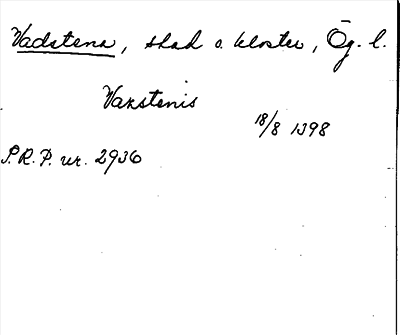 Vadstena, stad o. kloster, Ög. l.
Vaxstenis
18/8 1398
S.R.P. nr. 2936